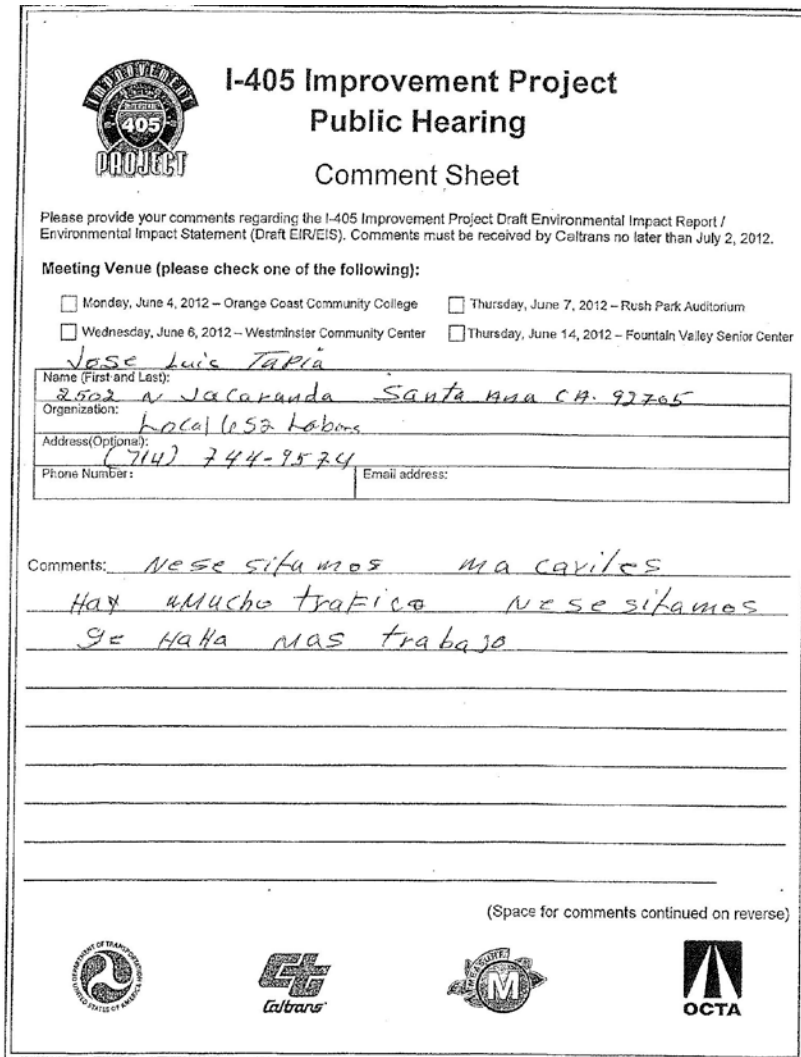 IMPROVEMENT
INTERSTATE
405
PROJECT
I-405 Improvement Project
Public Hearing
Comment Sheet
Please provide your comments regarding the I-405 Improvement Project Draft Environmental Impact Report /
Environmental Impact Statement (Draft EIR/EIS). Comments must be received by Caltrans no later than July 2, 2012.
Meeting Venue (please check one of the following):
Monday, June 4, 2012 – Orange Coast Community College
Thursday, June 7, 2012 – Rush Park Auditorium
Wednesday, June 6, 2012 – Westminster Community Center
Thursday, June 14, 2012 – Fountain Valley Senior Center
Jose Luis Tapia
Name (First and Last):
2502 N Jacaranda Santa Ana CA. 92705
Organization:
Local 652
Address(Optional):
(714) 744-9574
Phone Number:
Email address:
Comments: Nese sitamos ma
Hay Mucho traFico Nese sitamos
ge HaHa mas trabajo
(Space for comments continued on reverse)
DEPARTMENT OF TRANSPORTATION
UNITED STATES OF AMERICA
Caltrans
MEASURE
M
OCTA